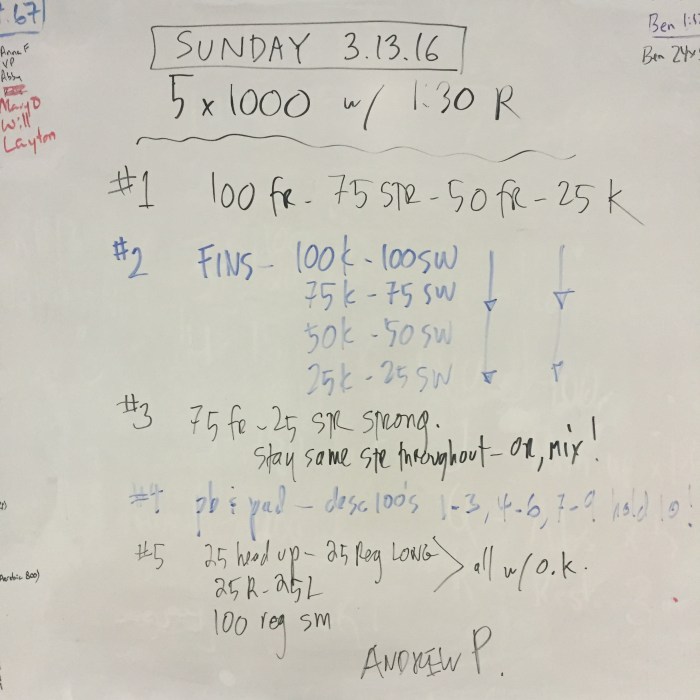 .67
Anne F
VP
Abby
Mary D
Will
Layton
Ben 1:5
Ben 24x
SUNDAY 3.13.16
5 x 1000 w/ 1:30 R
#1 100 fR - 75 STR - 50 fR - 25 K
#2 FINS - 100k - 100SW
75k - 75 SW
50k - 50 SW
25k - 25 SW
#3 75 fr - 25 STR STRONG.
Stay same STR throughout - OR, MIX!
#4 pb & pad - desc 100's 1-3, 4-6, 7-9 hold 10!
#5 25 head up - 25 Reg LONG
25R - 25L
100 reg sm
all w/ O.K.
800)
ANDREW P.